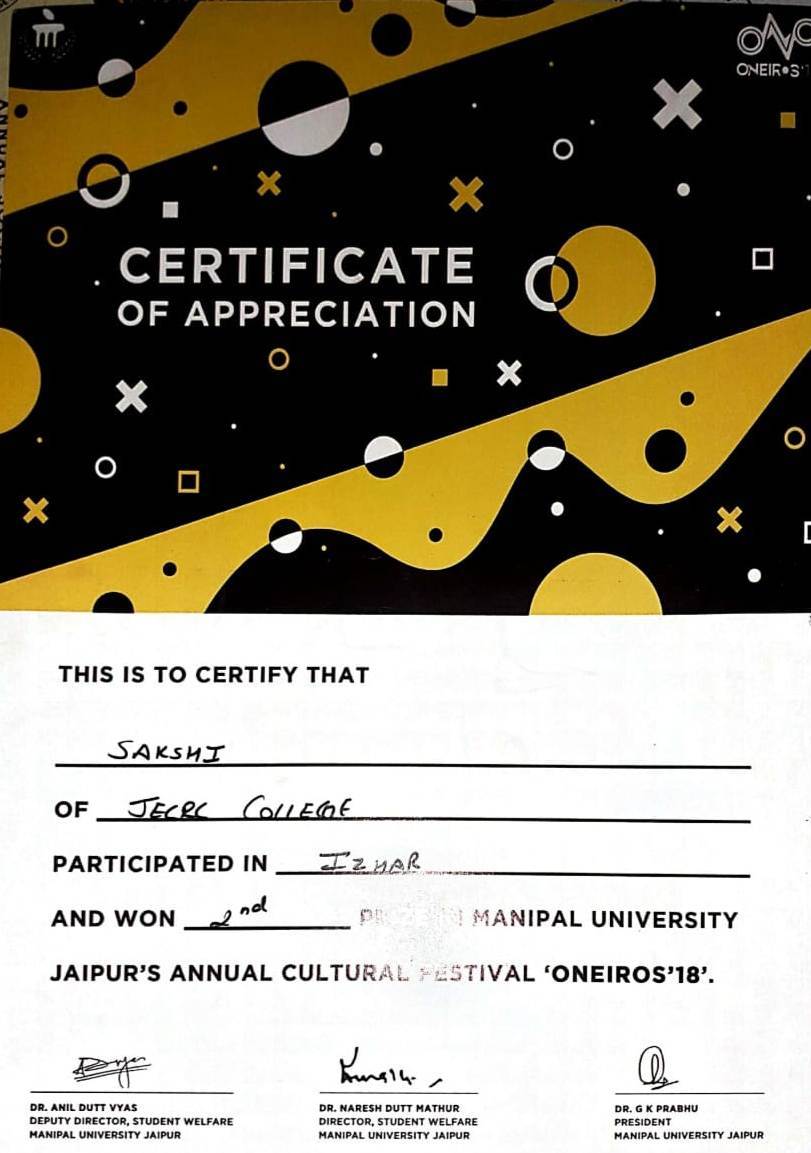 ONEIROS'1
CERTIFICATE
OF APPRECIATION
THIS IS TO CERTIFY THAT
SAKSHI
OF JECRC COLLEGE
PARTICIPATED IN IZHAR
AND WON 2nd PRIZE IN MANIPAL UNIVERSITY
JAIPUR'S ANNUAL CULTURAL FESTIVAL 'ONEIROS'18'.
DR. ANIL DUTT VYAS
DEPUTY DIRECTOR, STUDENT WELFARE
MANIPAL UNIVERSITY JAIPUR
DR. NARESH DUTT MATHUR
DIRECTOR, STUDENT WELFARE
MANIPAL UNIVERSITY JAIPUR
DR. G K PRABHU
PRESIDENT
MANIPAL UNIVERSITY JAIPUR